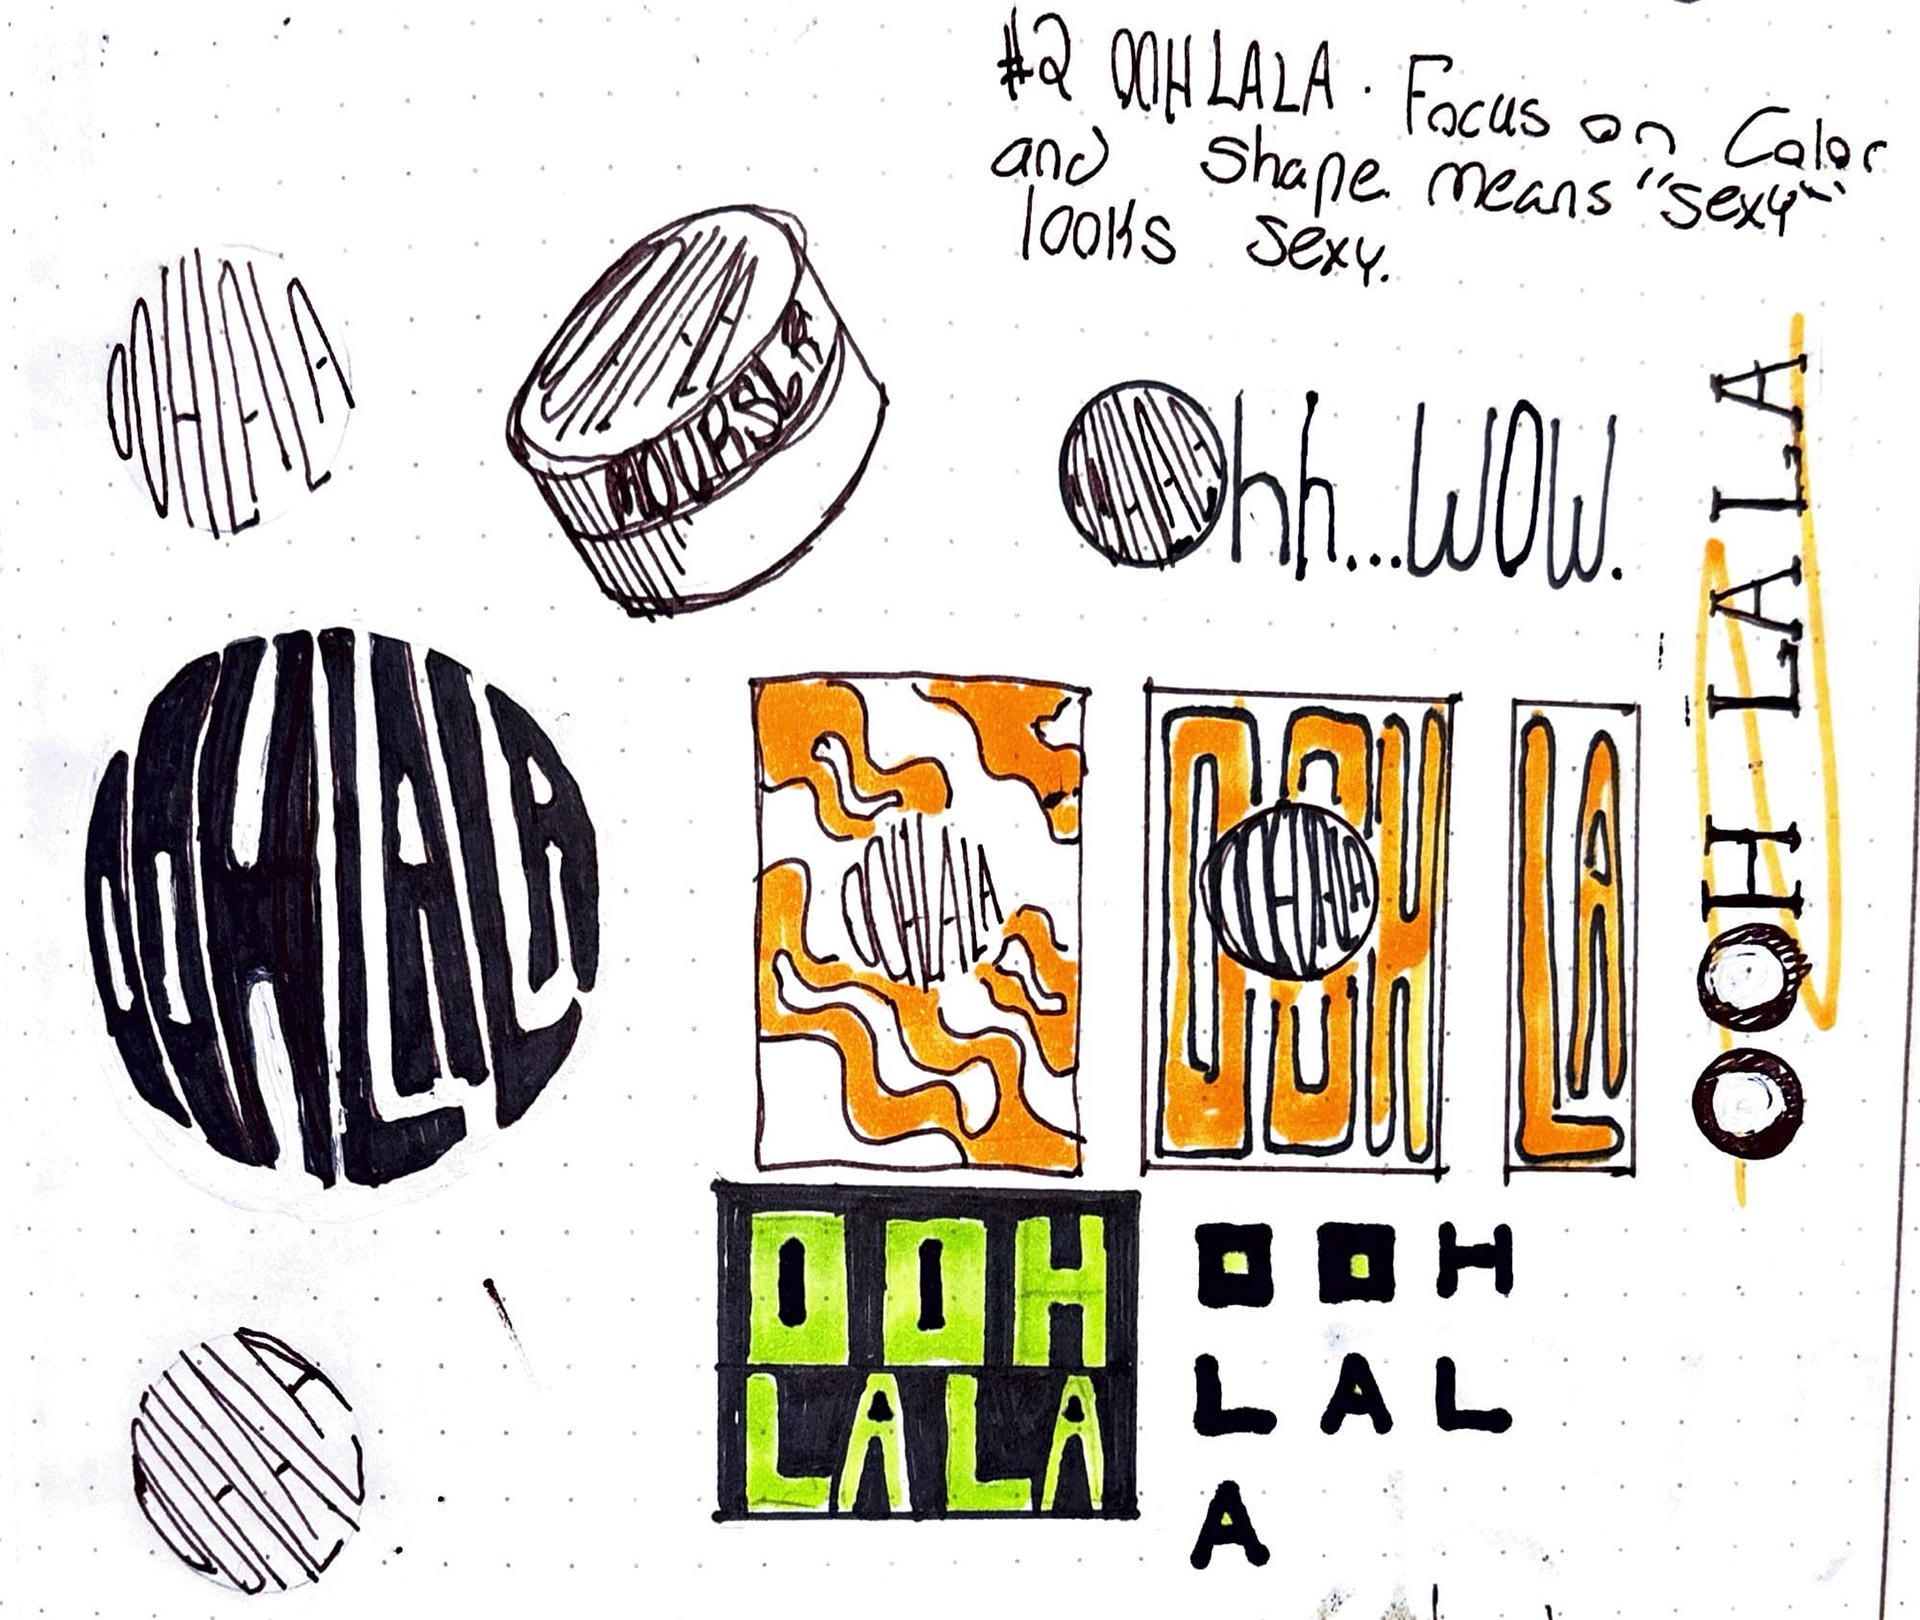 #2 OOHLALA. Focus on Color
and shape means "sexy"
looks sexy.
OOHLALA
OOHLALA
Ohh...WOW.
OOH LALA
OOHLALA
OOHLALA
OOH
OOHLALA
LA
OOH
LALA
OOH
LAL
A
OOHLALA